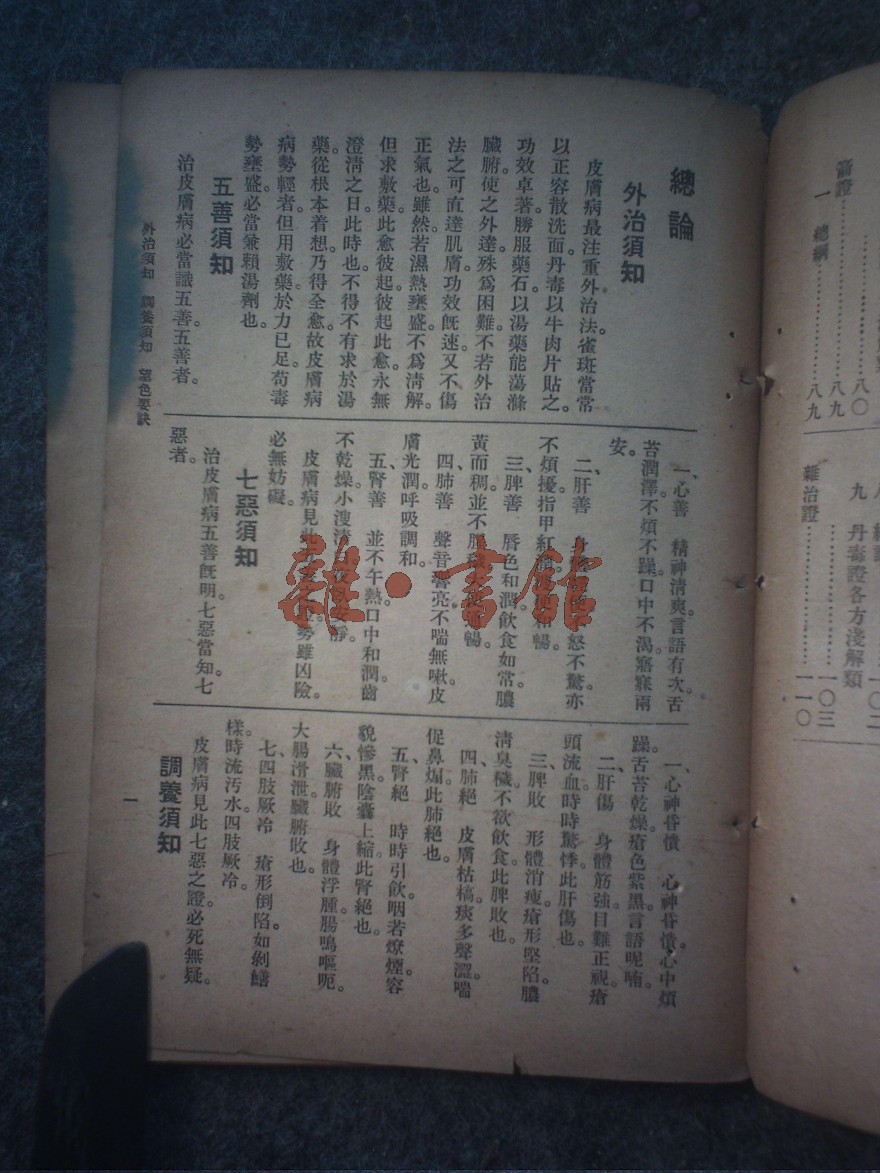 總論
外治須知
皮膚病最注重外治法。雀斑當常
以正容散洗面。丹毒以牛肉片貼之。
功效卓著勝服藥石。以湯藥能蕩滌
臟腑。使之外達。殊爲困難。不若外治
法之可直達肌膚。功效旣速。又不傷
正氣也。雖然。若濕熱壅盛。不爲淸解。
但求敷藥。此愈彼起。彼起此愈。永無
澄淸之日。此時也。不得不有求於湯
藥。從根本着想。乃得全愈。故皮膚病
病勢輕者。但用敷藥。於力已足。苟毒
勢壅盛。必當兼賴湯劑也。
五善須知
治皮膚病必當識五善。五善者。
一、心善 精神淸爽。言語有次。舌
苔潤澤。不煩不躁。口中不渴。寤寐兩
安。
二、肝善 身 怒不驚。亦
不煩擾。指甲紅 暢。
三、脾善 唇色和潤。飲食如常。膿
黃而稠。並不 暢。
四、肺善 聲音響亮。不喘無嗽。皮
膚光潤。呼吸調和。
五、腎善 並不午熱。口中和潤。齒
不乾燥。小溲淸 靜。
皮膚病見此 勢雖凶險。
必無妨礙。
七惡須知
治皮膚病五善旣明。七惡當知。七
惡者。
一、心神昏憒 心神昏憒。心中煩
躁。舌苔乾燥。瘡色紫黑。言語呢喃。
二、肝傷 身體筋強。目難正視。瘡
頭流血。時時驚悸。此肝傷也。
三、脾敗 形體消瘦。瘡形堅陷。膿
淸臭穢。不欲飲食。此脾敗也。
四、肺絕 皮膚枯槁。痰多聲澀。喘
促鼻煽。此肺絕也。
五、腎絕 時時引飲。咽若燎煙。容
貌慘黑。陰囊上縮。此腎絕也。
六、臟腑敗 身體浮腫。腸鳴嘔呃。
大腸滑泄。臟腑敗也。
七、四肢厥冷 瘡形倒陷。如剝鱔
樣。時流汚水。四肢厥冷。
皮膚病見此七惡之證。必死無疑。
調養須知
外治須知 調養須知 望色要訣
一
雜·書館
箭證
一 總綱
八〇
八九
八九
九 丹毒證各方淺解類
雜治證
一〇二
一〇三
一一〇